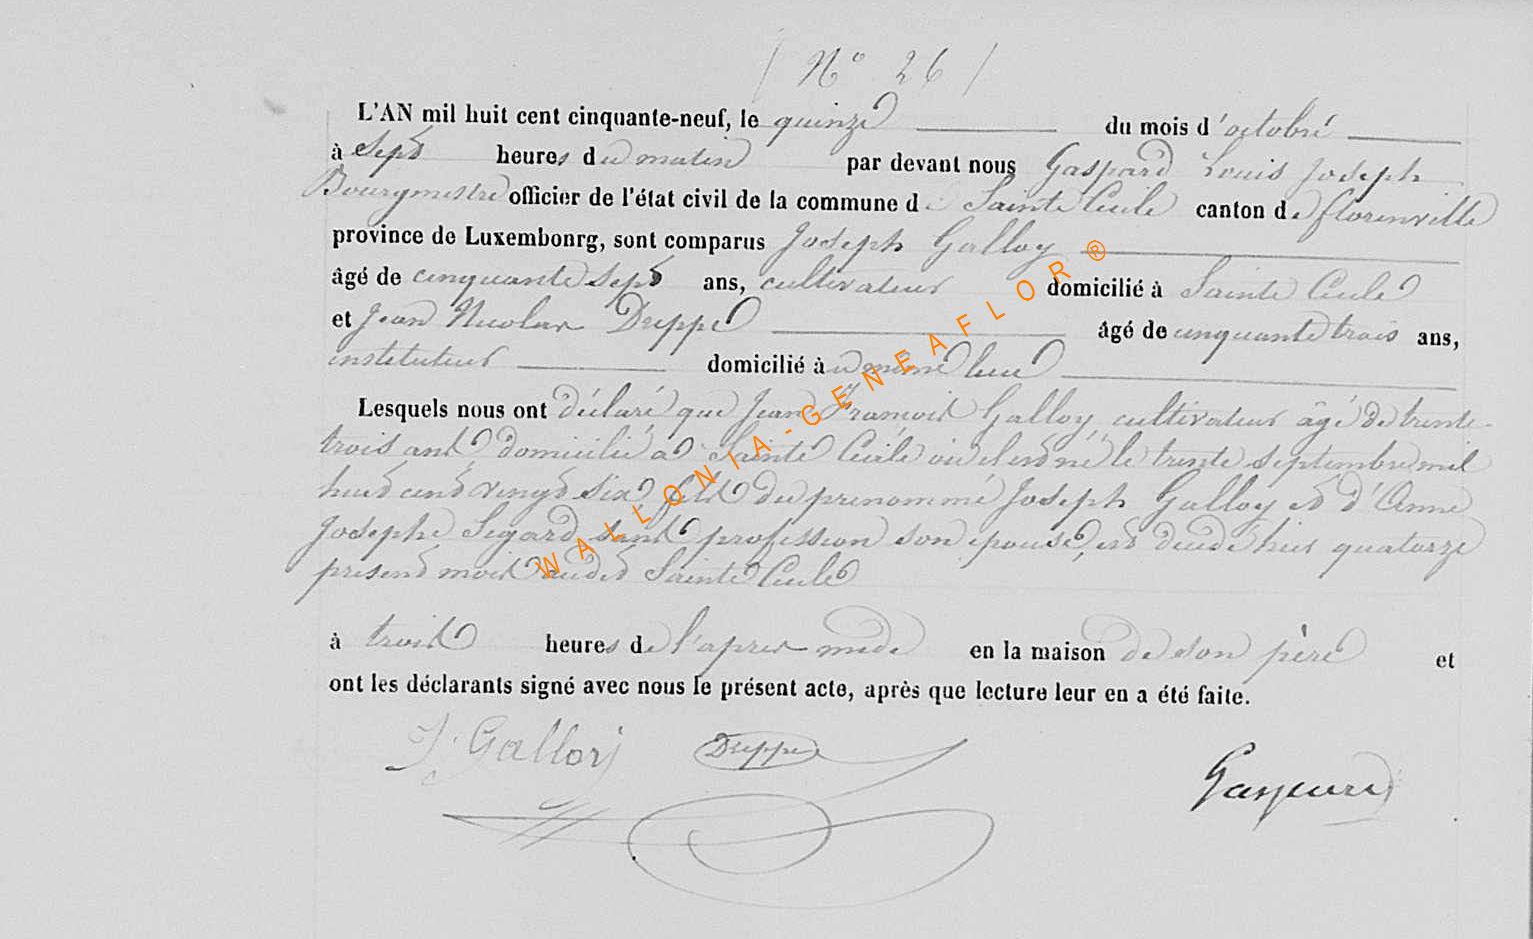 ( N° 26 )
L'AN mil huit cent cinquante-neuf, le quinze du mois d'octobre
à sept heures du matin par devant nous Gaspard Louis Joseph
Bourgmestre officier de l'état civil de la commune de Sainte Cécile canton de florenville
province de Luxembonrg, sont comparus Joseph Galloy
âgé de cinquante sept ans, cultivateur domicilié à Sainte Cécile
et Jean Nicolas Dreppe âgé de cinquante trois ans,
instituteur domicilié au même lieu
Lesquels nous ont déclaré que Jean François Galloy, cultivateur âgé de trente-
trois ans domicilié à Sainte Cécile où il est né le trente septembre mil
huit cent vingt six, fils du prénommé Joseph Galloy et d'Anne
Josephe Segard sans profession son épouse, est décédé hier quatorze
présent mois audit Sainte Cécile
à trois heures de l'après midi en la maison de son père et
ont les déclarants signé avec nous le présent acte, après que lecture leur en a été faite.
J. Galloy Dreppe Gaspard
WALLONIA-GENEAFLOR®